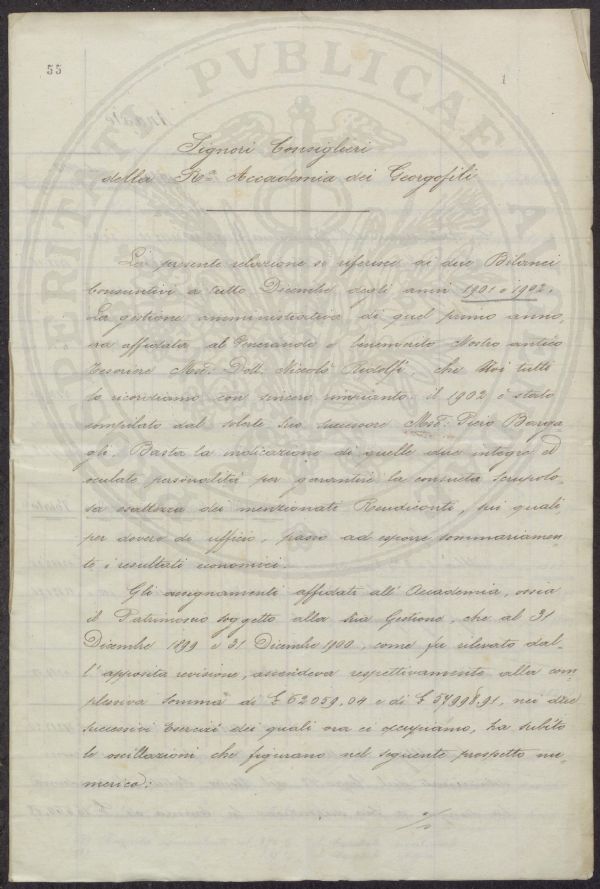 55
1
PROSPERITATI PVBLICAE AVGENDAE
Signori Consiglieri
della Ra Accademia dei Georgofili
La presente relazione si riferisce ai due Bilanci
Consuntivi a tutto Dicembre degli anni 1901 e 1902.
La gestione amministrativa di quel primo anno,
era affidata al Venerando e benemerito Nostro antico
Tesoriere Mse: Dott. Niccolò Ridolfi, che Noi tutti
lo ricordiamo con sincero rimpianto: il 1902 è stato
compilato dal solerte suo successore Mse: Piero Barga
gli. Basta la indicazione di quelle due integre, ed
oculate personalità per garantire la consueta scrupolo-
sa esattezza dei menzionati Rendiconti, sui quali
per dovere di ufficio, passo ad esporre sommariamen-
te i resultati economici.
Gli assegnamenti affidati all' Accademia, ossia
il Patrimonio soggetto alla sua Gestione, che al 31
Dicembre 1899 e 31 Dicembre 1900, come fu rilevato dal-
l' apposita revisione, ascendeva respettivamente alla com-
plessiva somma di £ 62059,04 e di £ 57998.91, nei due
successivi Esercizi dei quali ora ci occupiamo, ha subìto
le oscillazioni che figurano nel seguente prospetto nu-
merico: